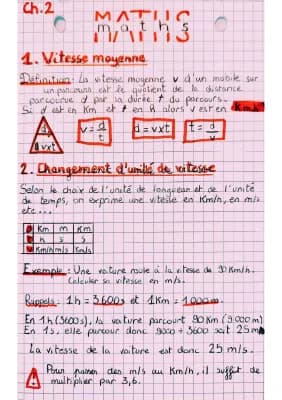 Ch.2
MATHS
maths
1. Vitesse moyenne
Définition: La vitesse moyenne v d'un mobile sur
un parcours, est le quotient de la distance
parcourue d par la durée t du parcours.
Si d est en Km et t en h alors v est en Km/h
d
v x t
v = d/t
d = v x t
t = d/v
2. Changement d'unité de vitesse
Selon le choix de l'unité de longueur et de l'unité
de temps, on exprime une vitesse en Km/h, en m/s
etc...
d Km m Km
t h s s
v Km/h m/s Km/s
Exemple: Une voiture roule à la vitesse de 90 Km/h.
Calculer sa vitesse en m/s.
Rappels: 1h = 3600s et 1Km = 1000m.
En 1h (3600s), la voiture parcourt 90 Km (9.000m)
En 1s, elle parcour donc 9000 ÷ 3600 soit 25m
La vitesse de la voiture est donc 25 m/s.
Pour passer des m/s au Km/h, il suffit de
multiplier par 3,6.